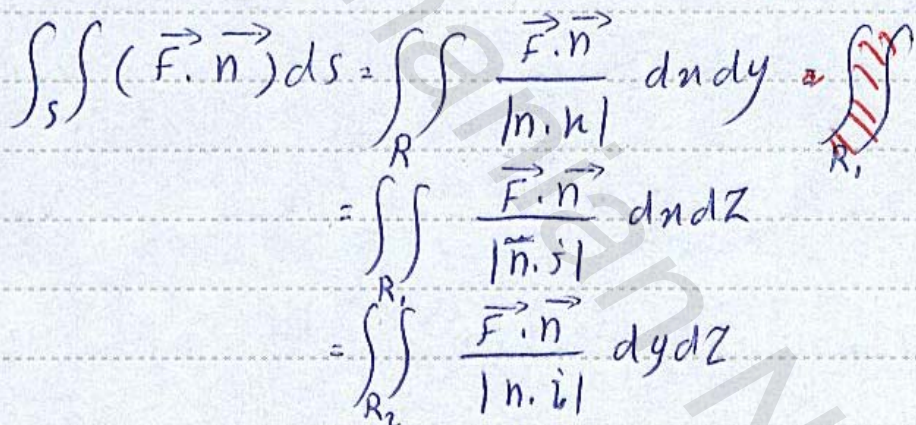 ∫∫_S (F⃗.n⃗)ds = ∫∫_R F⃗.n⃗/|n.k| dxdy =
= ∫∫_R₁ F⃗.n⃗/|n̄.j| dxdz
= ∫∫_R₂ F⃗.n⃗/|n.i| dydz